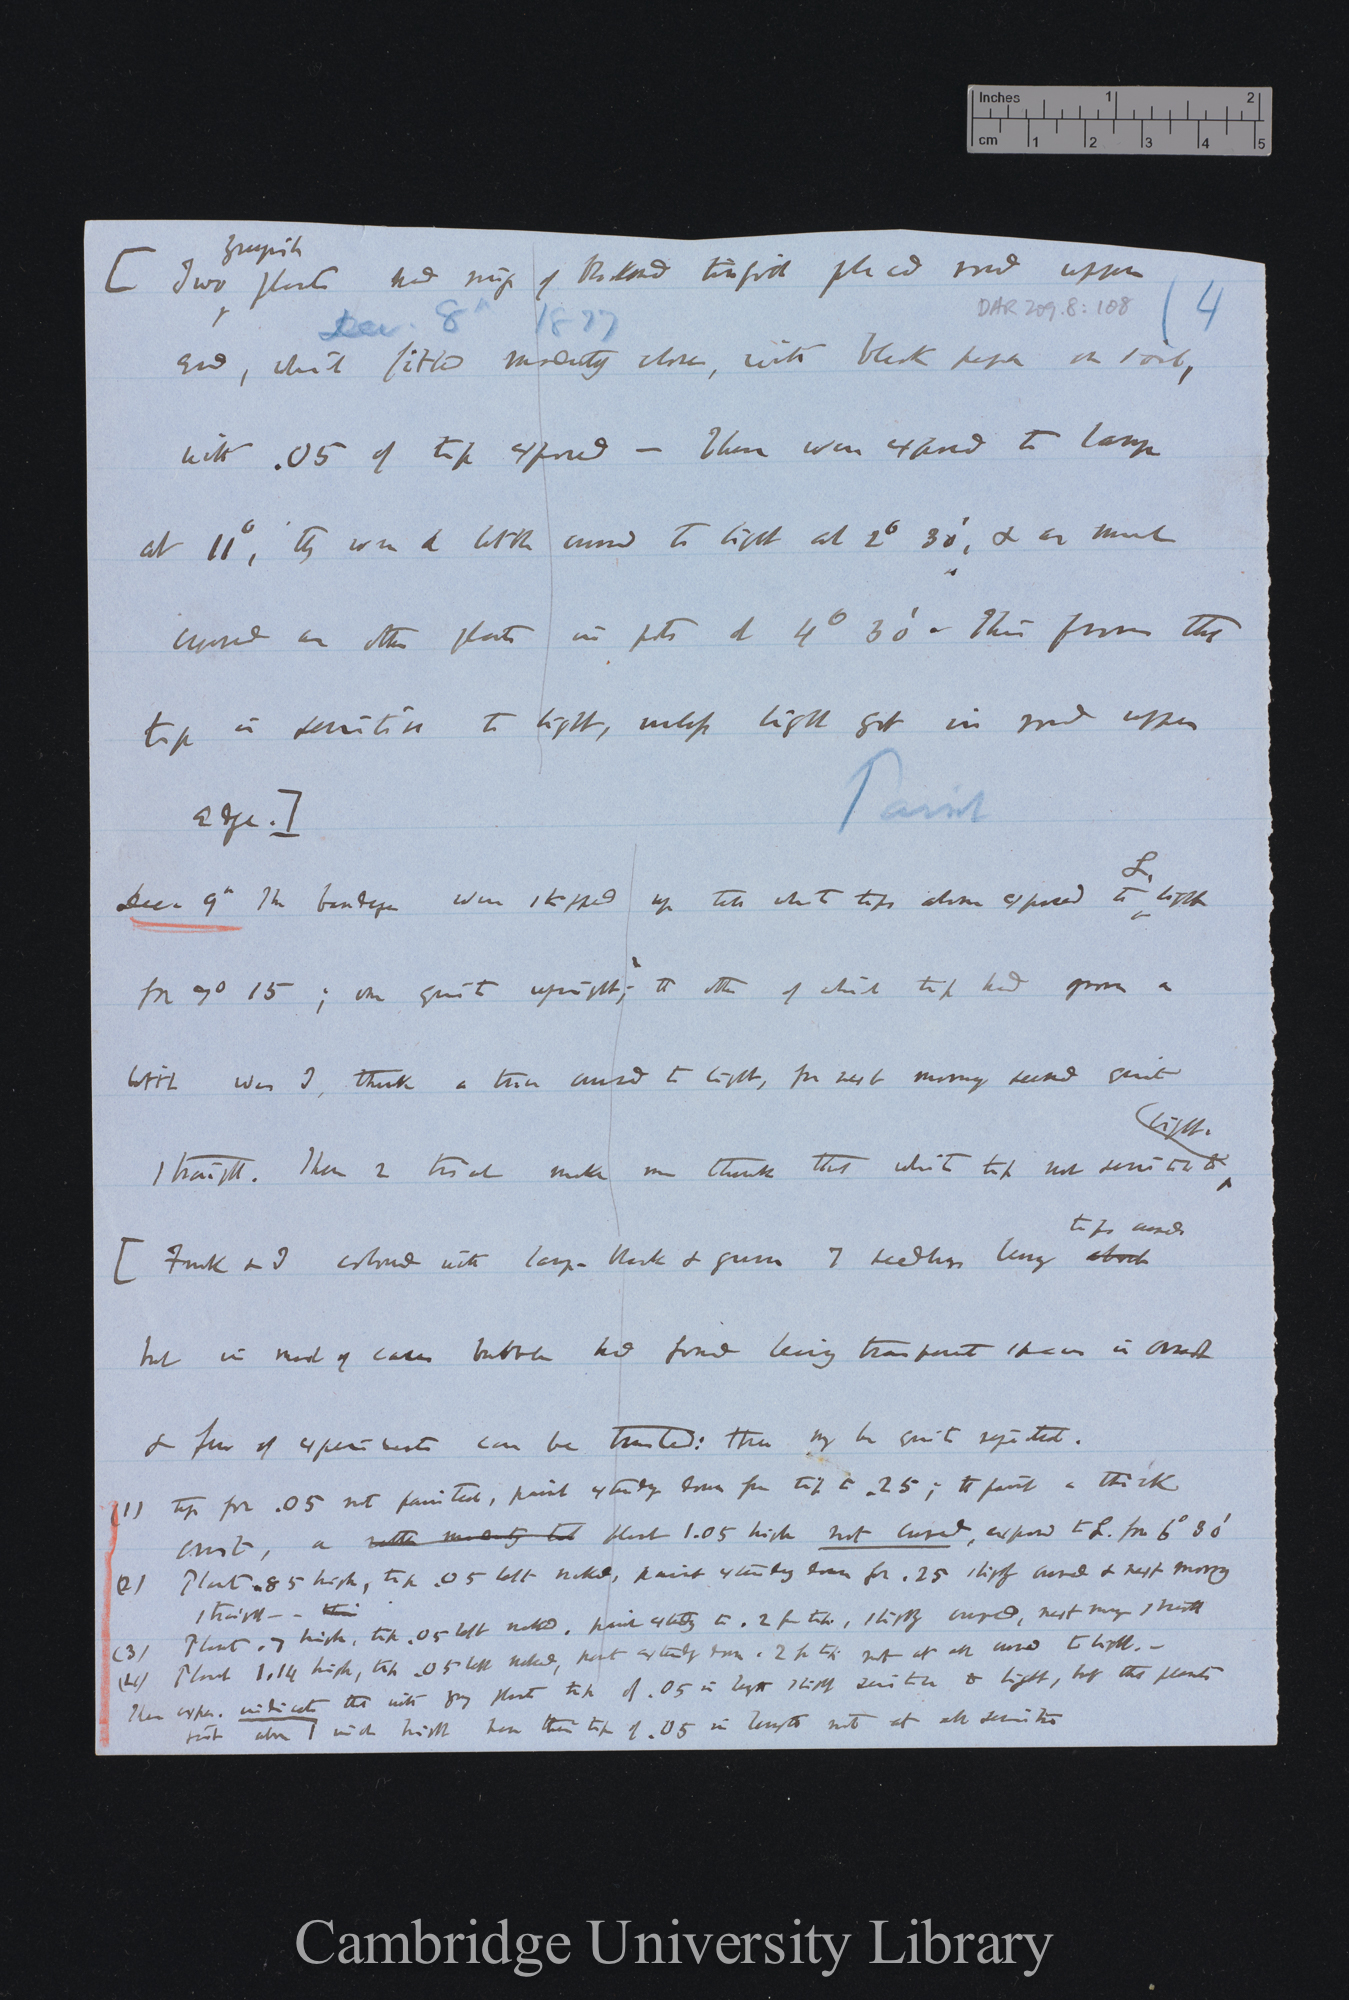 Inches 1 2
cm 1 2 3 4 5
youngish
[ Two plants had rings of blackened tinfoil placed round upper
DAR 209.8:108 (4
Dec. 8th 1877
end, which fitted moderately close, with black paper on soil,
with .05 of tip exposed — These were exposed to lamp
at 11°, they were a little curved to light at 2° 30', & as much
curved as other plants in pots at 4° 30' – This proves that
tip is sensitive to light, unless light got in round upper
edge.]
Paint
L.
Dec. 9th The bandages were slipped up till white tips alone exposed to light
for 7° 15'; one quite upright; the other of which tip had grown a
little was I, think a trace curved to light, for next morning seemed quite
light.
straight. These 2 trials make me think that white tip not sensitive to
tips
[ Frank & I coloured with lamp-black & gum 7 seedlings leaving
but in most of cases bubbles had formed leaving transparent spaces in
& few of experiments can be trusted: three may be quite rejected.
(1) tip for .05 not painted, paint extending down from tip to .25; the paint a thick
crust, a plant 1.05 high not curved, exposed to L. for 6° 30'
(2) Plant .85 high, tip .05 left naked, paint extending down for .25 slightly curved & next morning
straight –
(3) Plant .7 high, tip .05 left naked, paint extending to .2 from tip, slightly curved, next morning straight
(4) Plant 1.14 high, tip .05 left naked, paint extending down .2 from tip not at all curved to light. –
These exper. indicate that with young plants tip of .05 in length slightly sensitive to light, but that plants
about 1 inch high have their tip of .05 in length not at all sensitive
Cambridge University Library